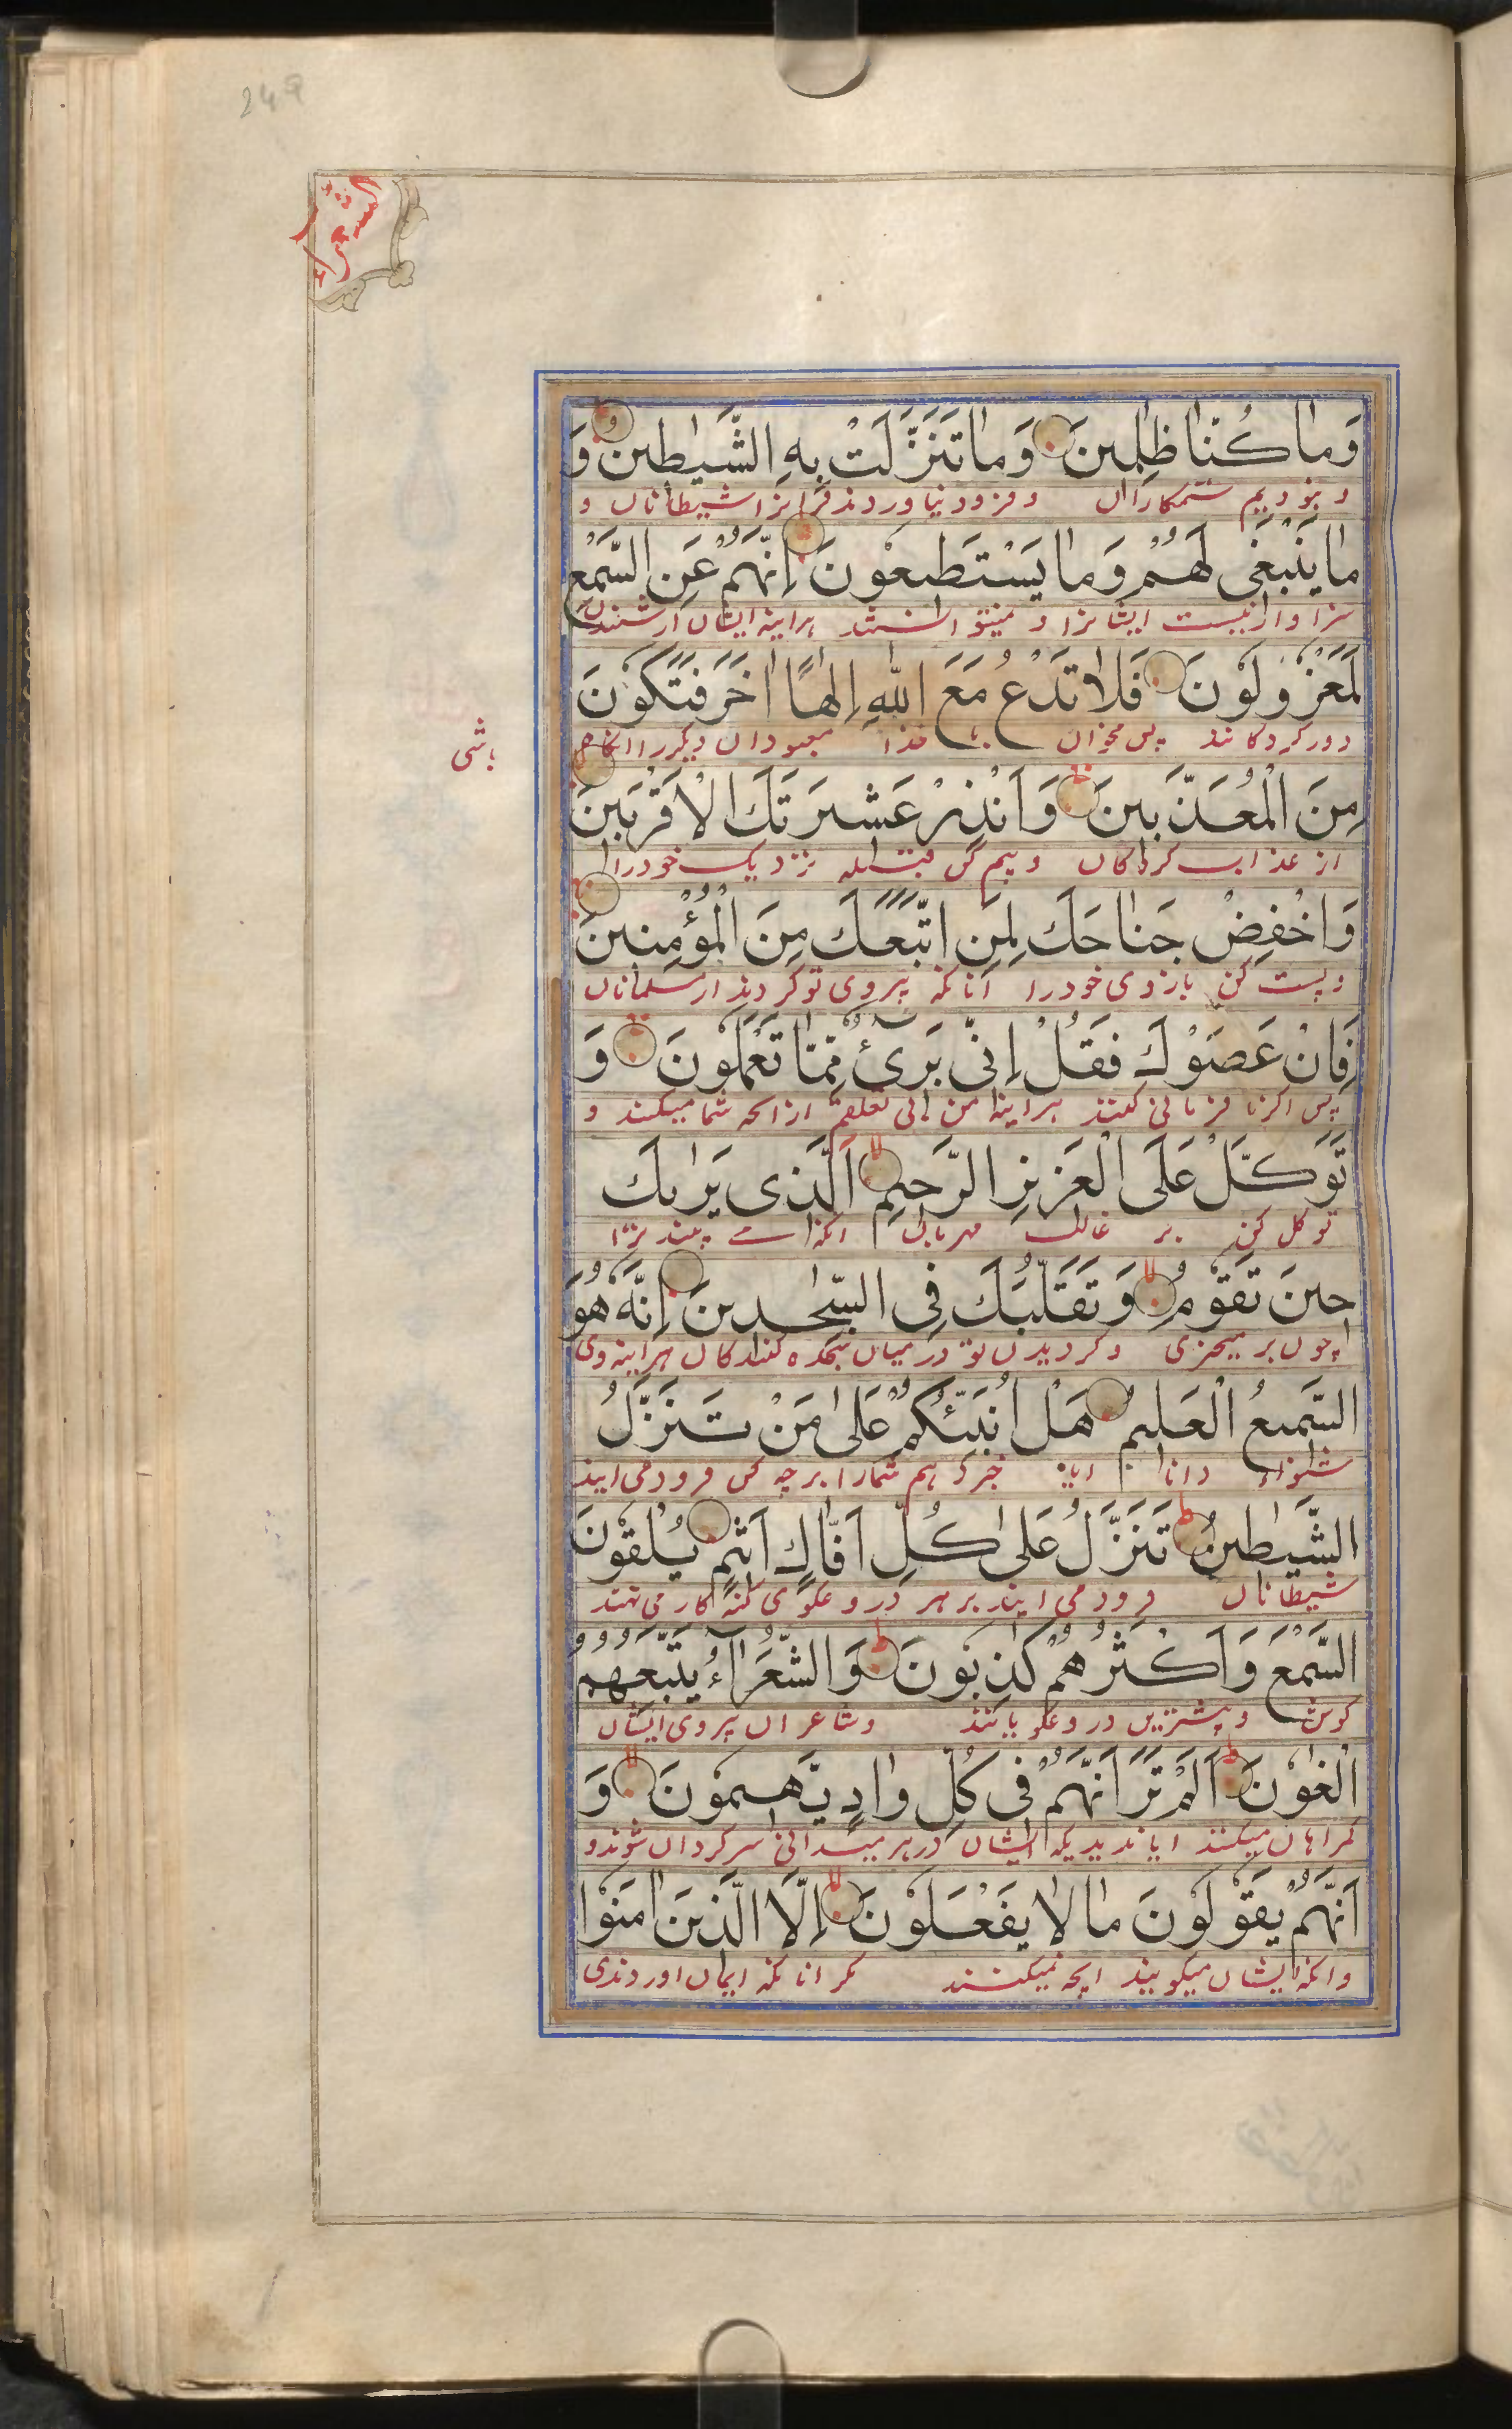 249
الشعراء
وَمٰا كُنّٰا ظٰلِمِينَ وَمٰا تَنَزَّلَتْ بِهِ الشَّيٰطِينُ وَ
و نبودیم ستمکاران و فرود نیاوردند قرانرا شیطانان و
مٰا يَنْبَغِى لَهُمْ وَمٰا يَسْتَطِيعُونَ اِنَّهُمْ عَنِ السَّمْعِ
سزاوار نیست ایشانرا و نمیتوانستند هراینه ایشان از شنیدن
لَمَعْزُولُونَ فَلٰا تَدْعُ مَعَ اللّٰهِ اِلٰهًا اٰخَرَ فَتَكُونَ
دورکردکانند پس مخوان با خدا معبودان دیکررا انکاه
باشی
مِنَ الْمُعَذَّبِينَ وَاَنْذِرْ عَشِيرَتَكَ الْاَقْرَبِينَ
از عذاب کردکان و بیم کن قبیله نزدیک خودرا
وَاخْفِضْ جَنٰاحَكَ لِمَنِ اتَّبَعَكَ مِنَ الْمُؤْمِنِينَ
و پست کن بازوی خودرا انانکه پیروی تو کردند از مسلمانان
فَاِنْ عَصَوْكَ فَقُلْ اِنِّى بَرِىٓءٌ مِمّٰا تَعْمَلُونَ وَ
پس اکر نافرمانی کنند هراینه من بی تعلقم از انچه شما میکنند و
تَوَكَّلْ عَلَى الْعَزِيزِ الرَّحِيمِ اَلَّذِى يَرٰيكَ
توکل کن بر غالب مهربان انکه می بیند ترا
حِينَ تَقُومُ وَتَقَلُّبَكَ فِى السّٰجِدِينَ اِنَّهُ هُوَ
چون بر میخیزی و کردیدن تو در میان سجده کنندکان هراینه وی
السَّمِيعُ الْعَلِيمُ هَلْ اُنَبِّئُكُمْ عَلىٰ مَنْ تَنَزَّلُ
شنواء دانا ایا خبر دهم شمارا بر چه کس فرود می ایند
الشَّيٰطِينُ تَنَزَّلُ عَلىٰ كُلِّ اَفّٰاكٍ اَثِيمٍ يُلْقُونَ
شیطانان فرود می ایند بر هر دروغکوی کنهکار می نهند
السَّمْعَ وَاَكْثَرُهُمْ كٰذِبُونَ وَالشُّعَرٰآءُ يَتَّبِعُهُمُ
کوش و بیشترین دروغکویانند و شاعران پیروی ایشان
الْغٰوُنَ اَلَمْ تَرَ اَنَّهُمْ فِى كُلِّ وٰادٍ يَهِيمُونَ وَ
کمراهان میکنند ایا ندیدی که ایشان در هر میدانی سرکردان شوند و
اَنَّهُمْ يَقُولُونَ مٰا لٰا يَفْعَلُونَ اِلَّا الَّذِينَ اٰمَنُوا
و انکه ایشان میکویند انچه نمیکنند مکر انانکه ایمان اوردندی